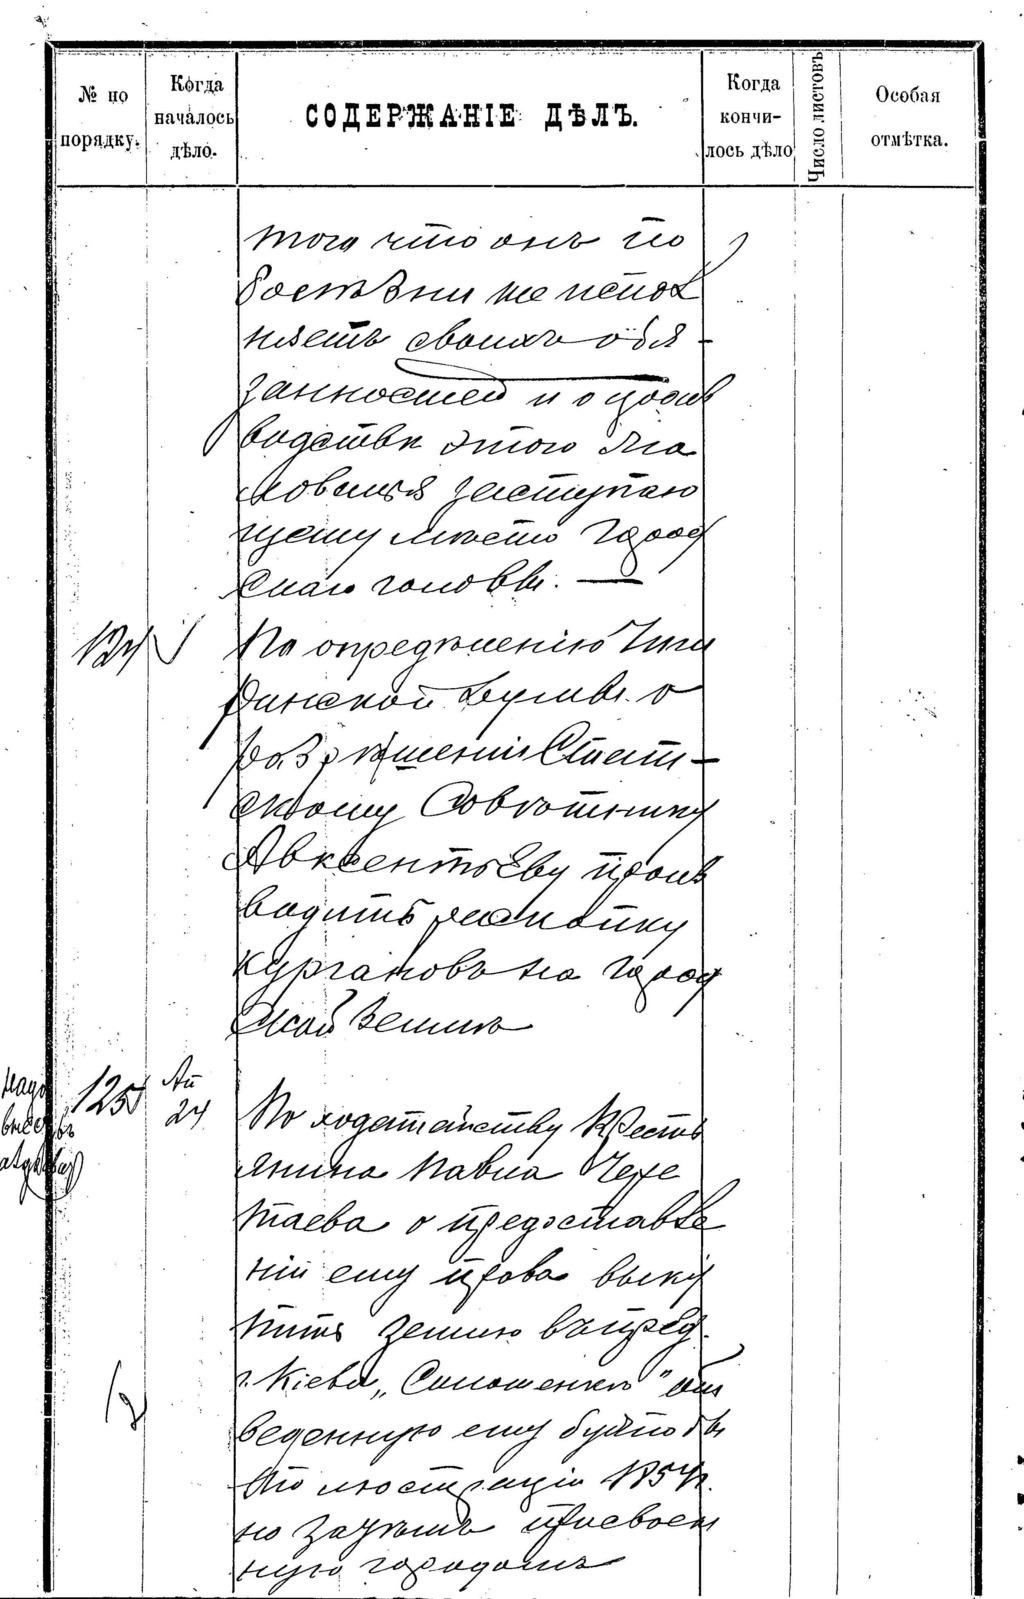 № по порядку.
Когда началось дѣло.
СОДЕРЖАНІЕ ДѢЛЪ.
Когда кончилось дѣло
Число листовъ
Особая отмѣтка.
того что онъ по
болѣзни не испол
няетъ своихъ обя-
занностей и о произ
водствѣ этого жа
лованья заступаю
щему мѣсто город
скаго головы. —
124
По опредѣленію Чиги
ринской Думы о
разрѣшеніи Стат-
скому Совѣтнику
Авксентьеву произ
водить раскопку
кургановъ на город
ской землѣ
надо
125
Ап
24
По ходатайству Крестъ
янина Павла
таева о предоставле
ніи ему права выку
пить землю въ пред.
г. Кіева „Соломенкѣ" отъ
веденную ему будто бы
по люстраціи 1854 г.
но затѣмъ присвоен
ную городомъ